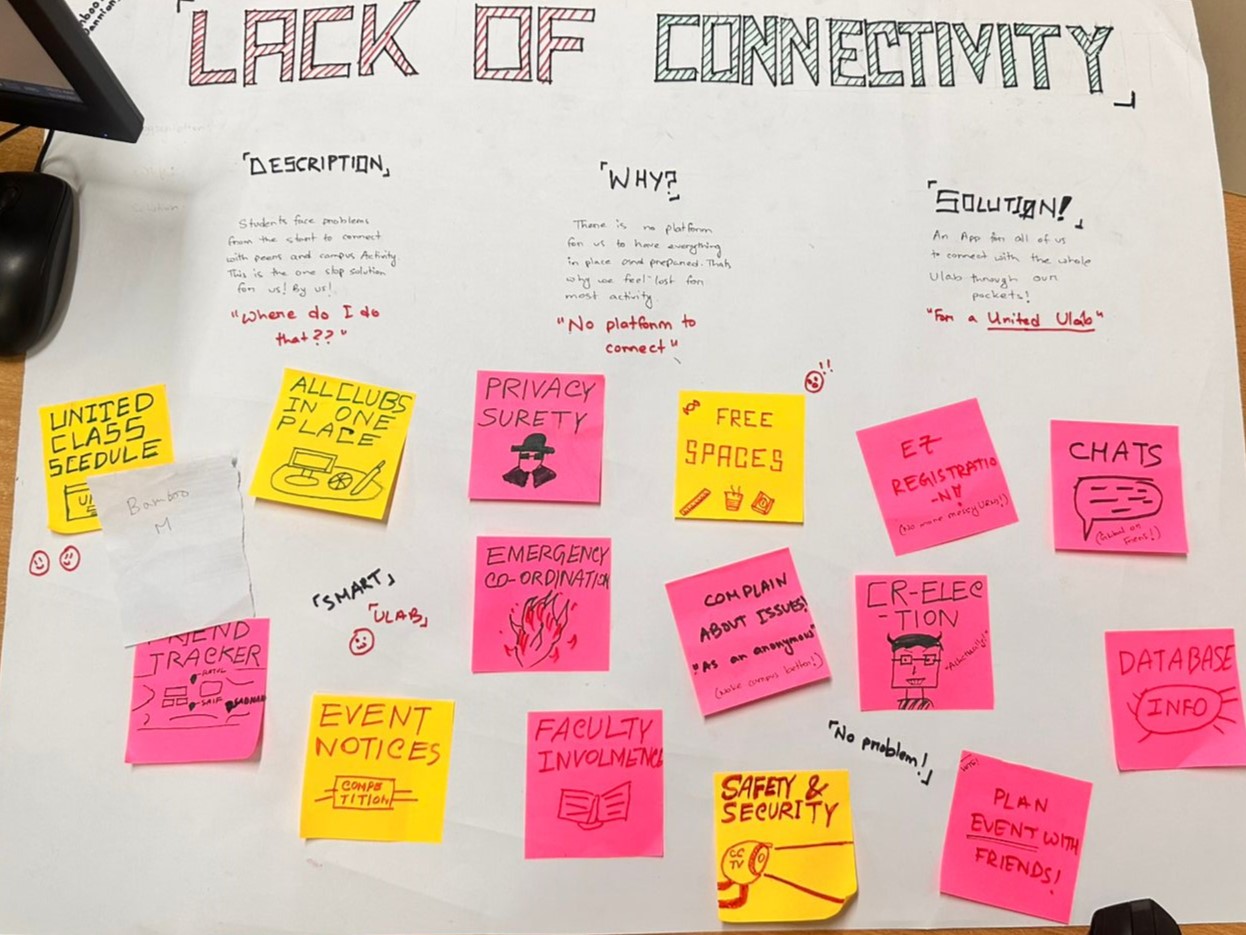 「LACK OF CONNECTIVITY」
「DESCRIPTION」
Students face problems
from the start to connect
with peers and campus Activity.
This is the one stop solution
for us! By us!
"Where do I do
that??"
「WHY?」
There is no platform
for us to have everything
in place and prepared. Thats
why we feel lost for
most activity.
"No platform to
connect"
「SOLUTION!」
An App for all of us
to connect with the whole
Ulab through our
pockets!
"For a United Ulab"
UNITED
CLASS
SCEDULE
Bamboo
M
ALL CLUBS
IN ONE
PLACE
PRIVACY
SURETY
!!
FREE
SPACES
EZ
REGISTRATIO
-N
CHATS
EMERGENCY
CO-ORDINATION
「SMART」
「ULAB」
COMPLAIN
ABOUT ISSUES!
"As an anonymous"
(Make campus better!)
CR-ELEC
-TION
"Actually!"
DATABASE
INFO
FRIEND
TRACKER
-SAIF
EVENT
NOTICES
COMPE
TITION
FACULTY
INVOLMENC
「No problem!」
SAFETY &
SECURITY
CC
TV
PLAN
EVENT WITH
FRIENDS!